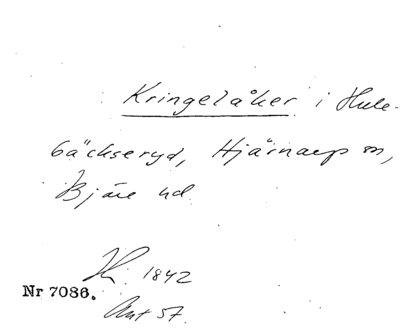 Kringelåker i Hule-
bäckseryd, Hjärnarp sn,
Bjäre hd
1842
Nr 7086.
Ant 57